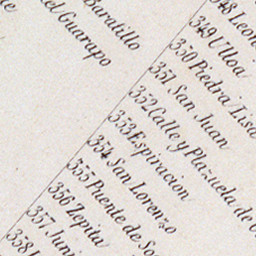 Baratillo
del Guarapo
348 Leon
349 Ulloa
350 Piedra Lisa
351 San Juan
352 Calle y Plazuela de
353 Espiracion
354 San Lorenzo
355 Puente de So
356 Zepita
357 Juni
358